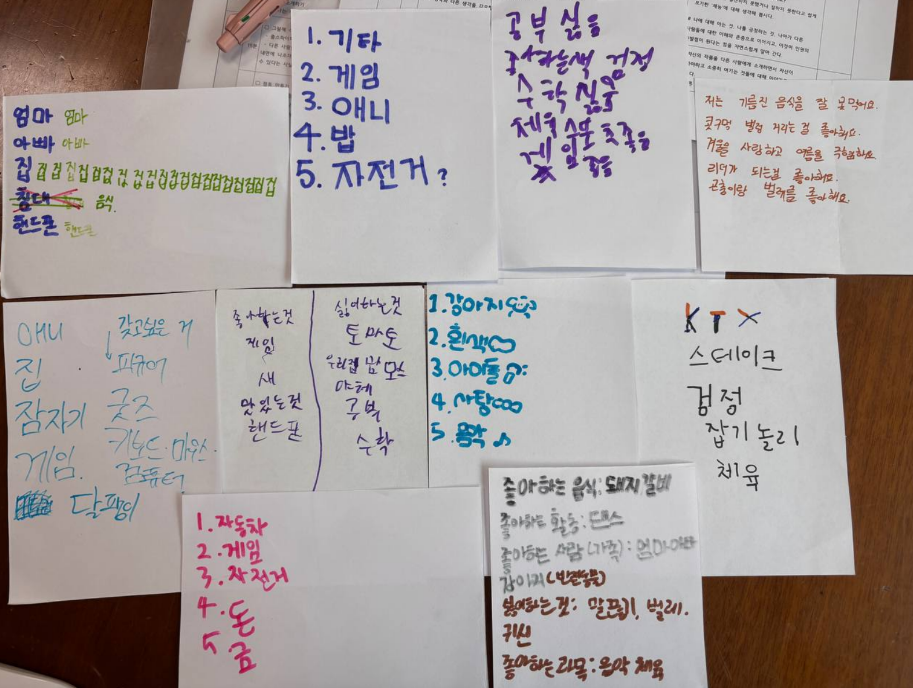 엄마 엄마
아빠 아빠
집 집 집 집 집 집 집 집 집 집 집 집 집 집 집 집 집 집 집 집
침대 음식.
핸드폰 핸드폰
1. 기타
2. 게임
3. 애니
4. 밥
5. 자전거?
공부 싫음
좋아하는색 검정
수학 싫음
체육 수문 좋음
게임 좋음
저는 기름진 음식을 잘 못먹어요.
콧구멍 벌렁 거리는걸 좋아해요.
겨울을 사랑하고 여름을 극혐해요
리더가 되는걸 좋아해요.
곤충이랑 벌레를 좋아해요.
애니
집
잠자기
게임.
달팽이
갖고싶은 거
피규어
굿즈
키보드·마우스·
컴퓨터
좋아하는것
게임
새
맛있는것
핸드폰
싫어하는것
토마토
우리집
공부
수학
1. 강아지
2. 흰색
3. 아이돌
4. 사탕
5. 음악 ♪
KTX
스테이크
검정
잡기놀이
체육
1. 자동차
2. 게임
3. 자전거
4. 돈
5. 금
좋아하는 음식: 돼지갈비
좋아하는 활동: 댄스
좋아하는 사람(가족): 엄마·아빠
강아지(반려동물)
싫어하는것: 말뚝, 벌레.
귀신
좋아하는과목: 음악 체육